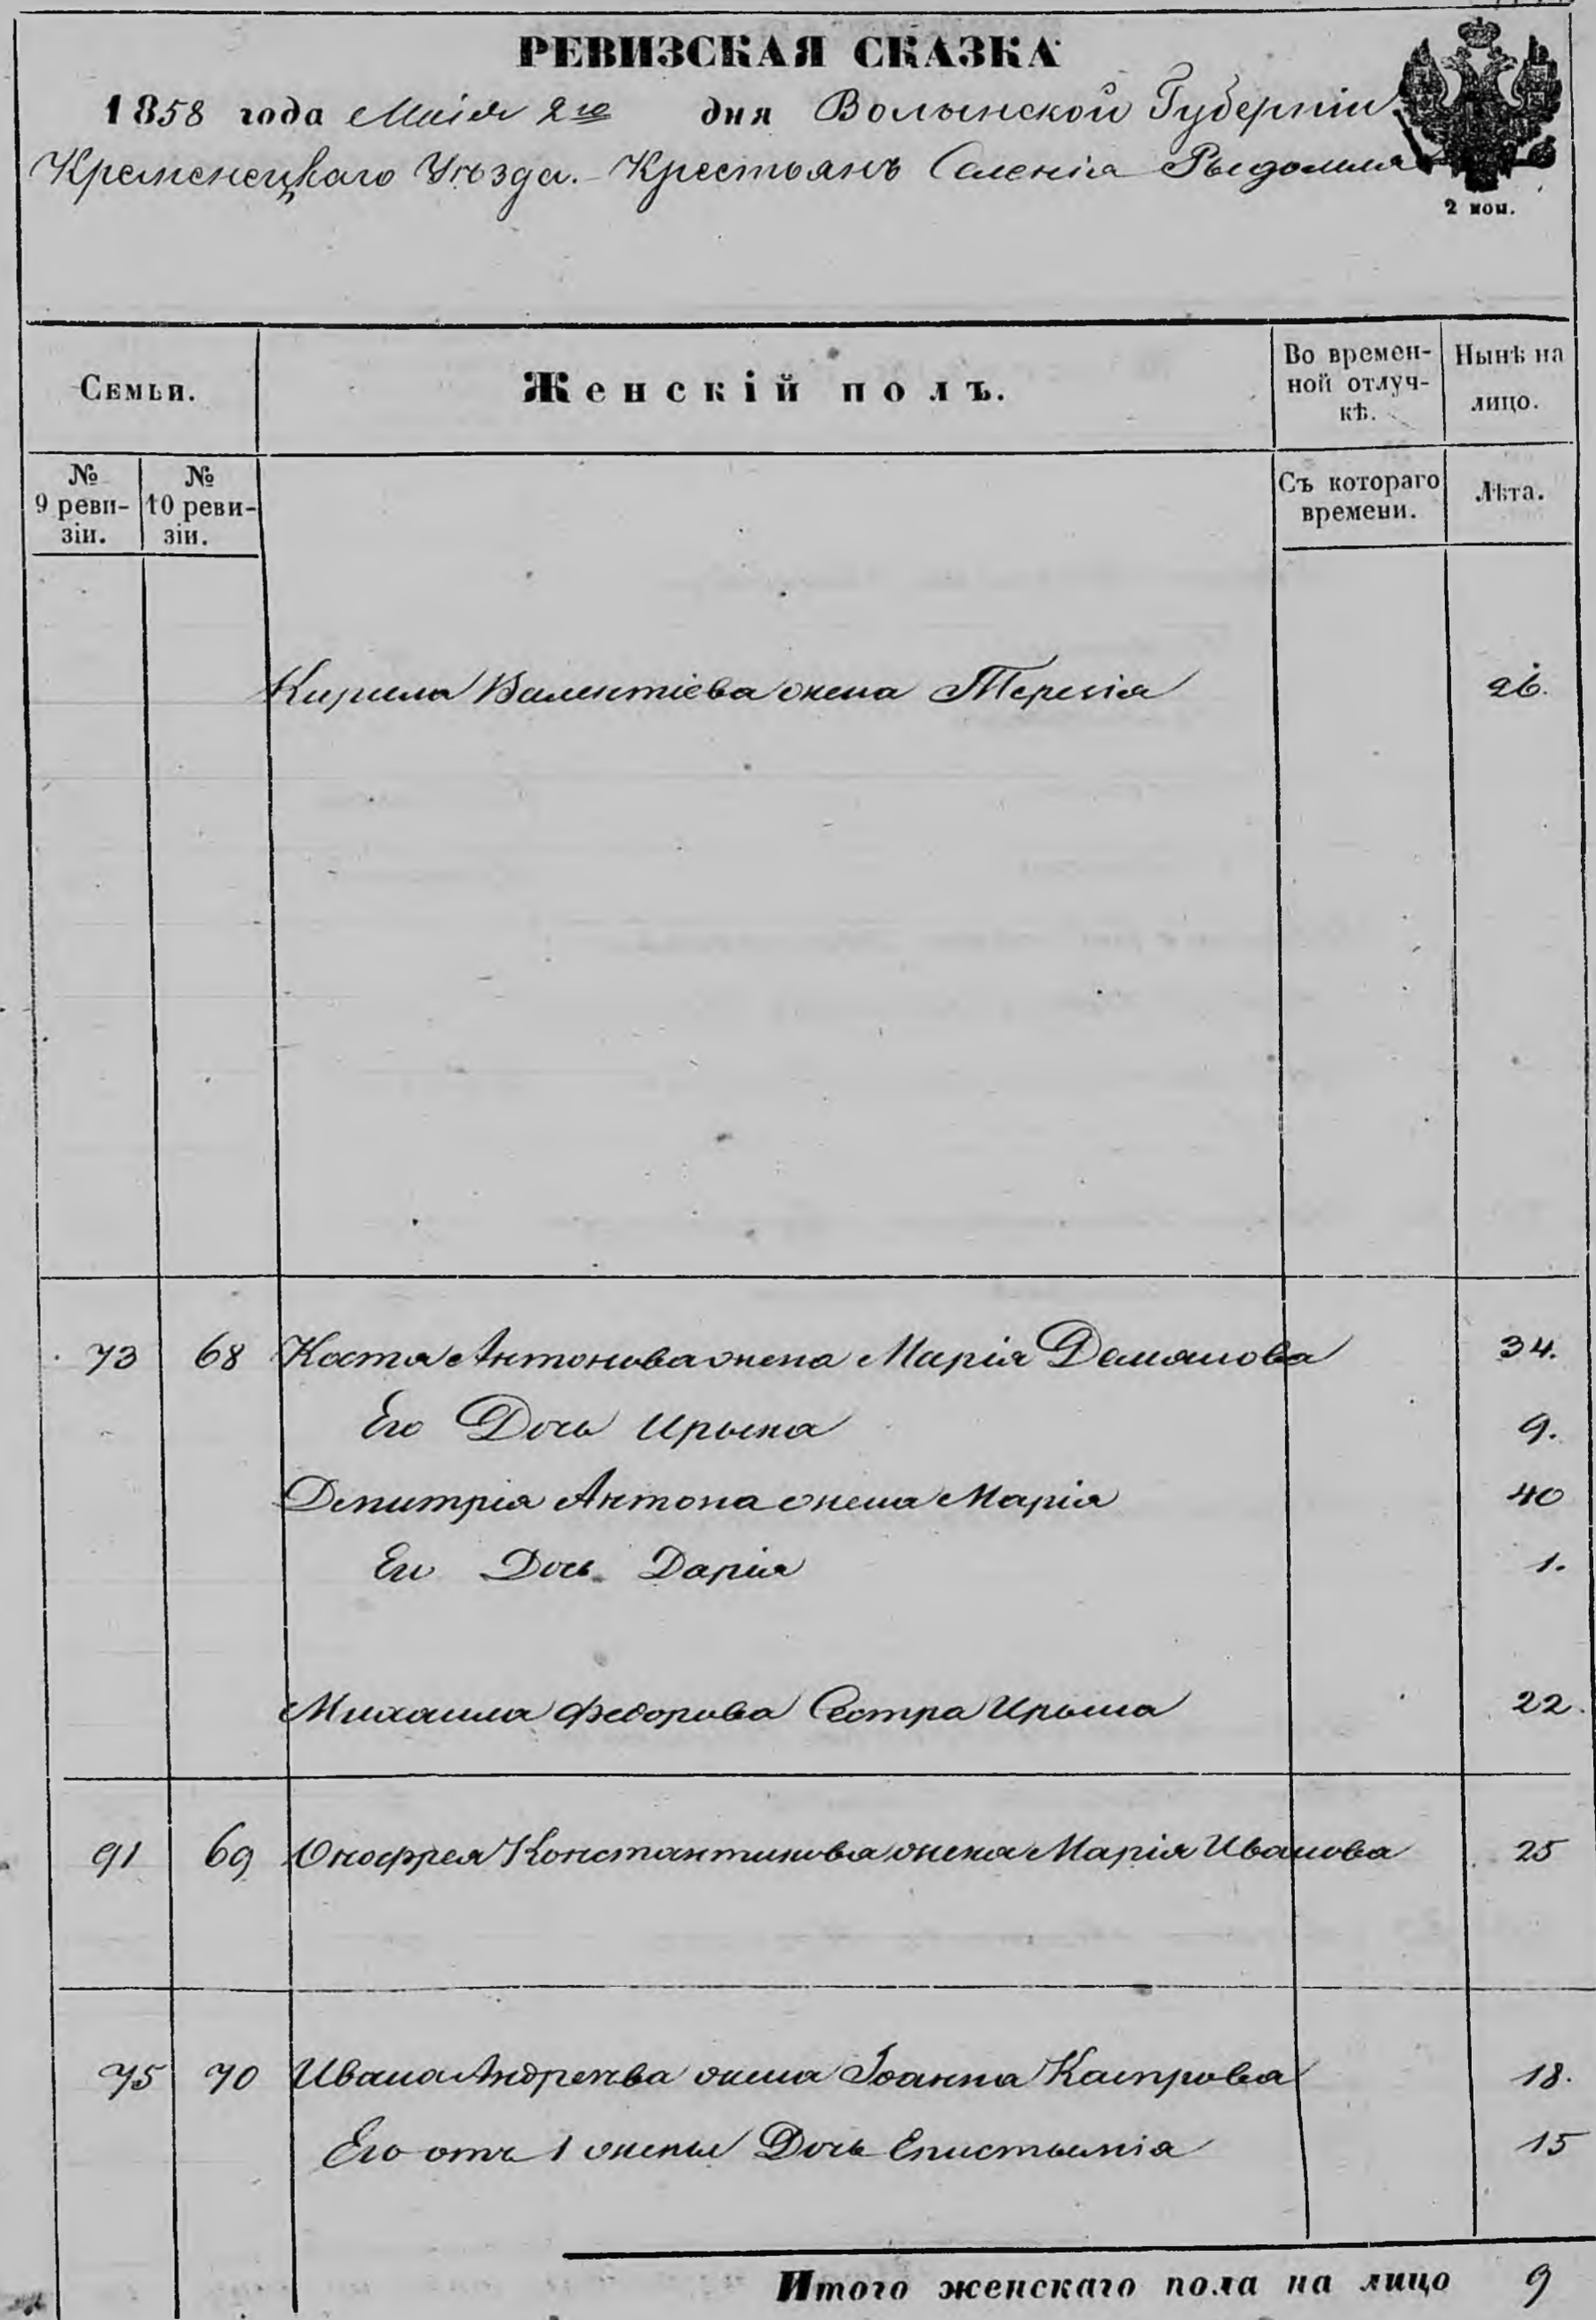 РЕВИЗСКАЯ СКАЗКА
1858 года Маія 2го дня Волынской Губерніи
Кременецкаго Уѣзда. Крестьянъ Селенія Рыдомля
2 коп.
Семьи. Женскій полъ. Во времен-ной отлуч-кѣ. Нынѣ на лицо.
№ 9 реви-зіи. № 10 реви-зіи. Съ котораго времени. Лѣта.
Кирила Валентіева жена Терезія 26.
73 68 Костя Антонова жена Марія Демянова 34.
Его Дочь Ирына 9.
Дмитрія Антона жена Марія 40
Его Дочь Дарія 1.
Михаила Федорова Сестра Ирына 22.
91 69 Онофрея Константинова жена Марія Иванова 25
75 70 Ивана Андреева жена Іоанна Каспрова 18.
Его отъ 1 жены Дочь 15
Итого женскаго пола на лицо 9